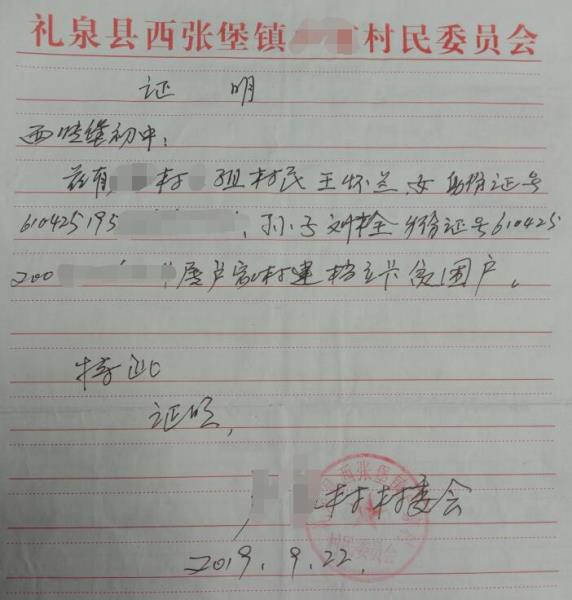 礼泉县西张堡镇 村民委员会
证 明
西 堡初中：
兹有 村 组村民王怀兰，女 身份证号
610425195 ，孙子刘 全 身份证号610425
200 ，属卢家村建档立卡贫困户。
特此
证明，
卢 村村委会
2019.9.22.
县西张堡镇
村民委员会